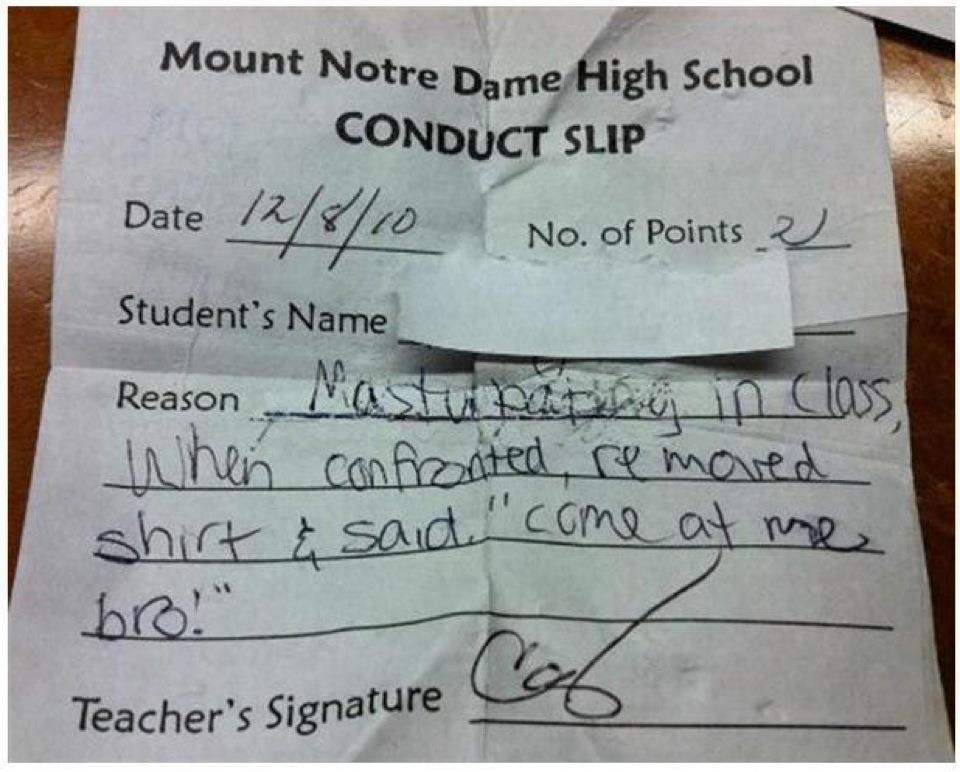 Mount Notre Dame High School
CONDUCT SLIP
Date 12/8/10 No. of Points 2
Student's Name
Reason Masturbating in class,
When confronted, removed
shirt & said "come at me
bro!"
Teacher's Signature